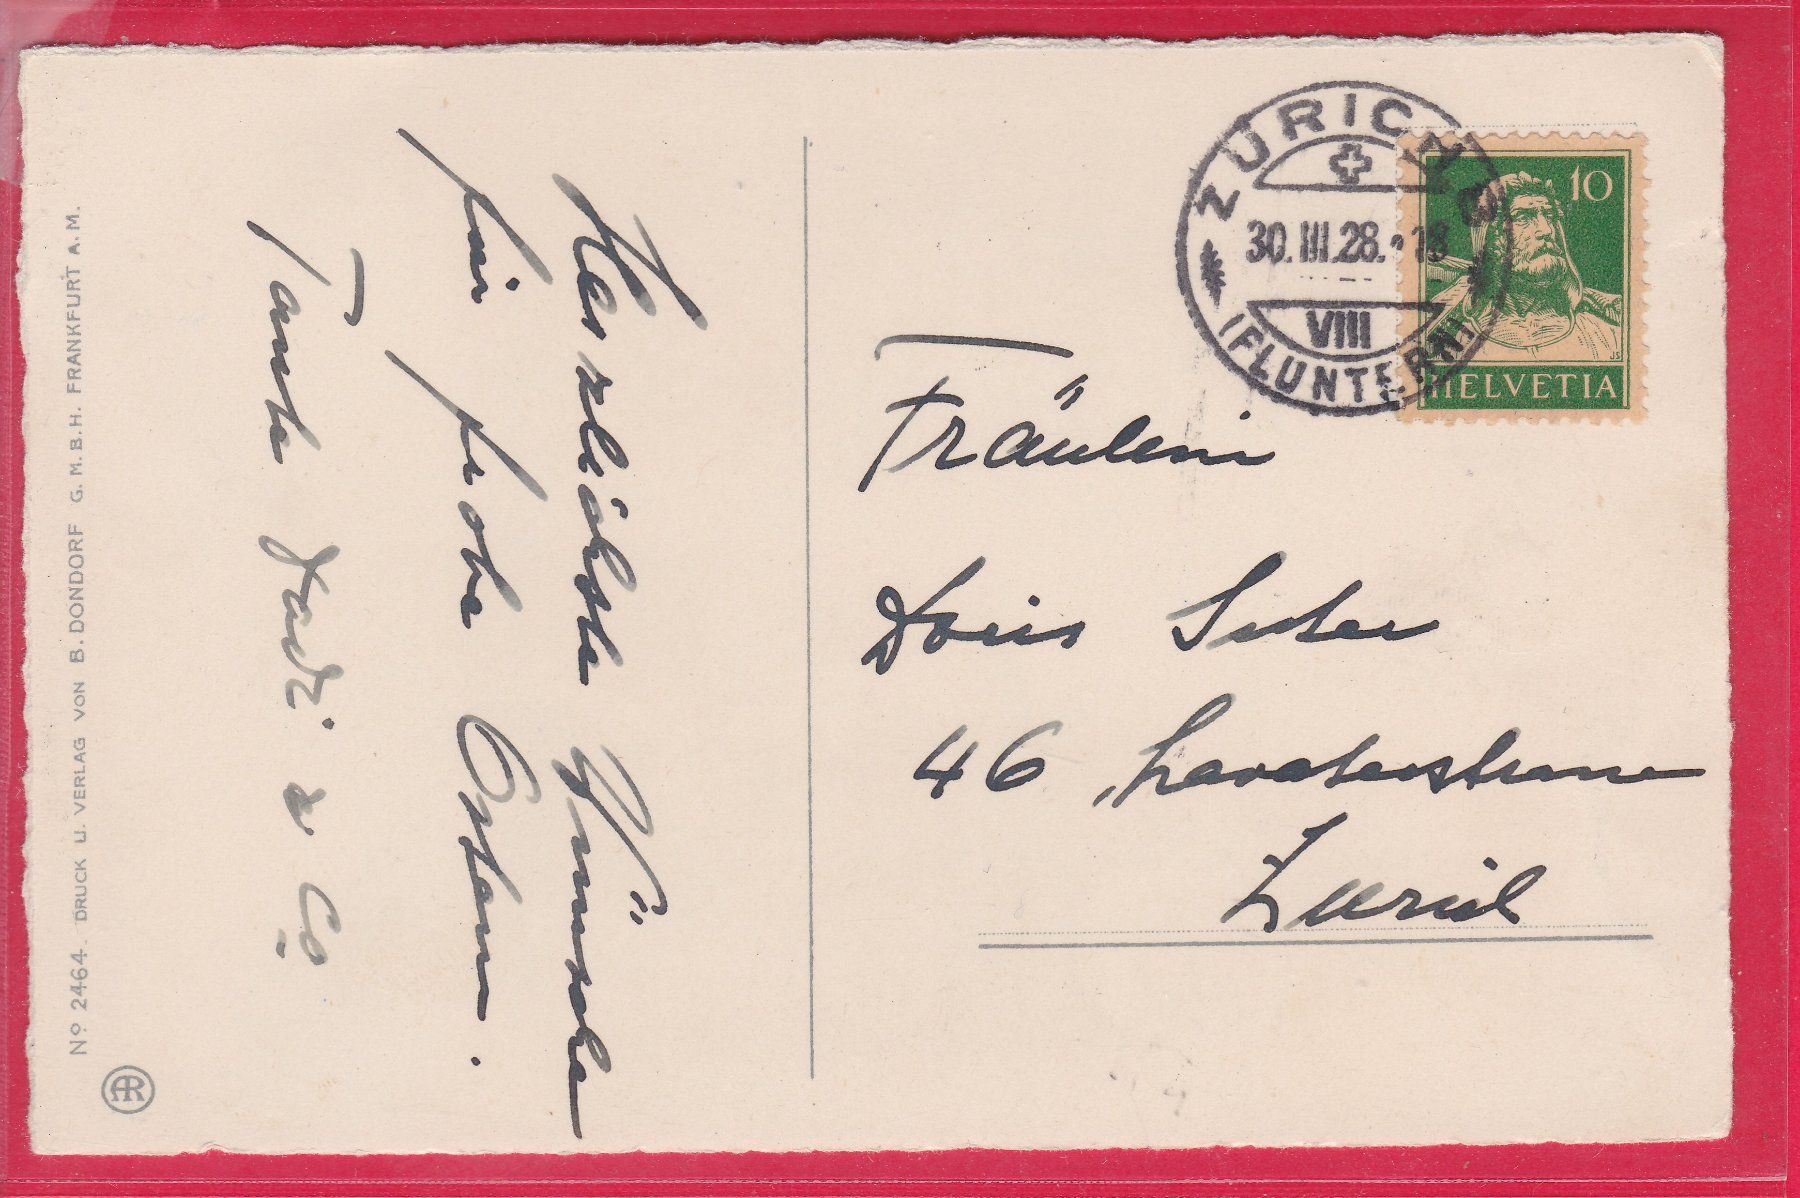 Herzlichste Wünsche
für frohe Ostern.
Tante
& Co
Fräulein
Doris Suter
46 Lavaterstrasse
Zürich
ZÜRICH 8
30.III.28. 18
VIII
(FLUNTERN)
10
HELVETIA
JS
Nº 2464. DRUCK U. VERLAG VON B. DONDORF G.M.B.H. FRANKFURT A.M.